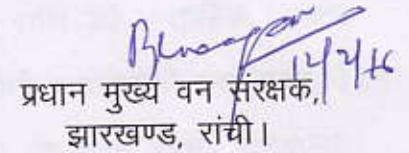 14/2/16
प्रधान मुख्य वन संरक्षक,
झारखण्ड, रांची।